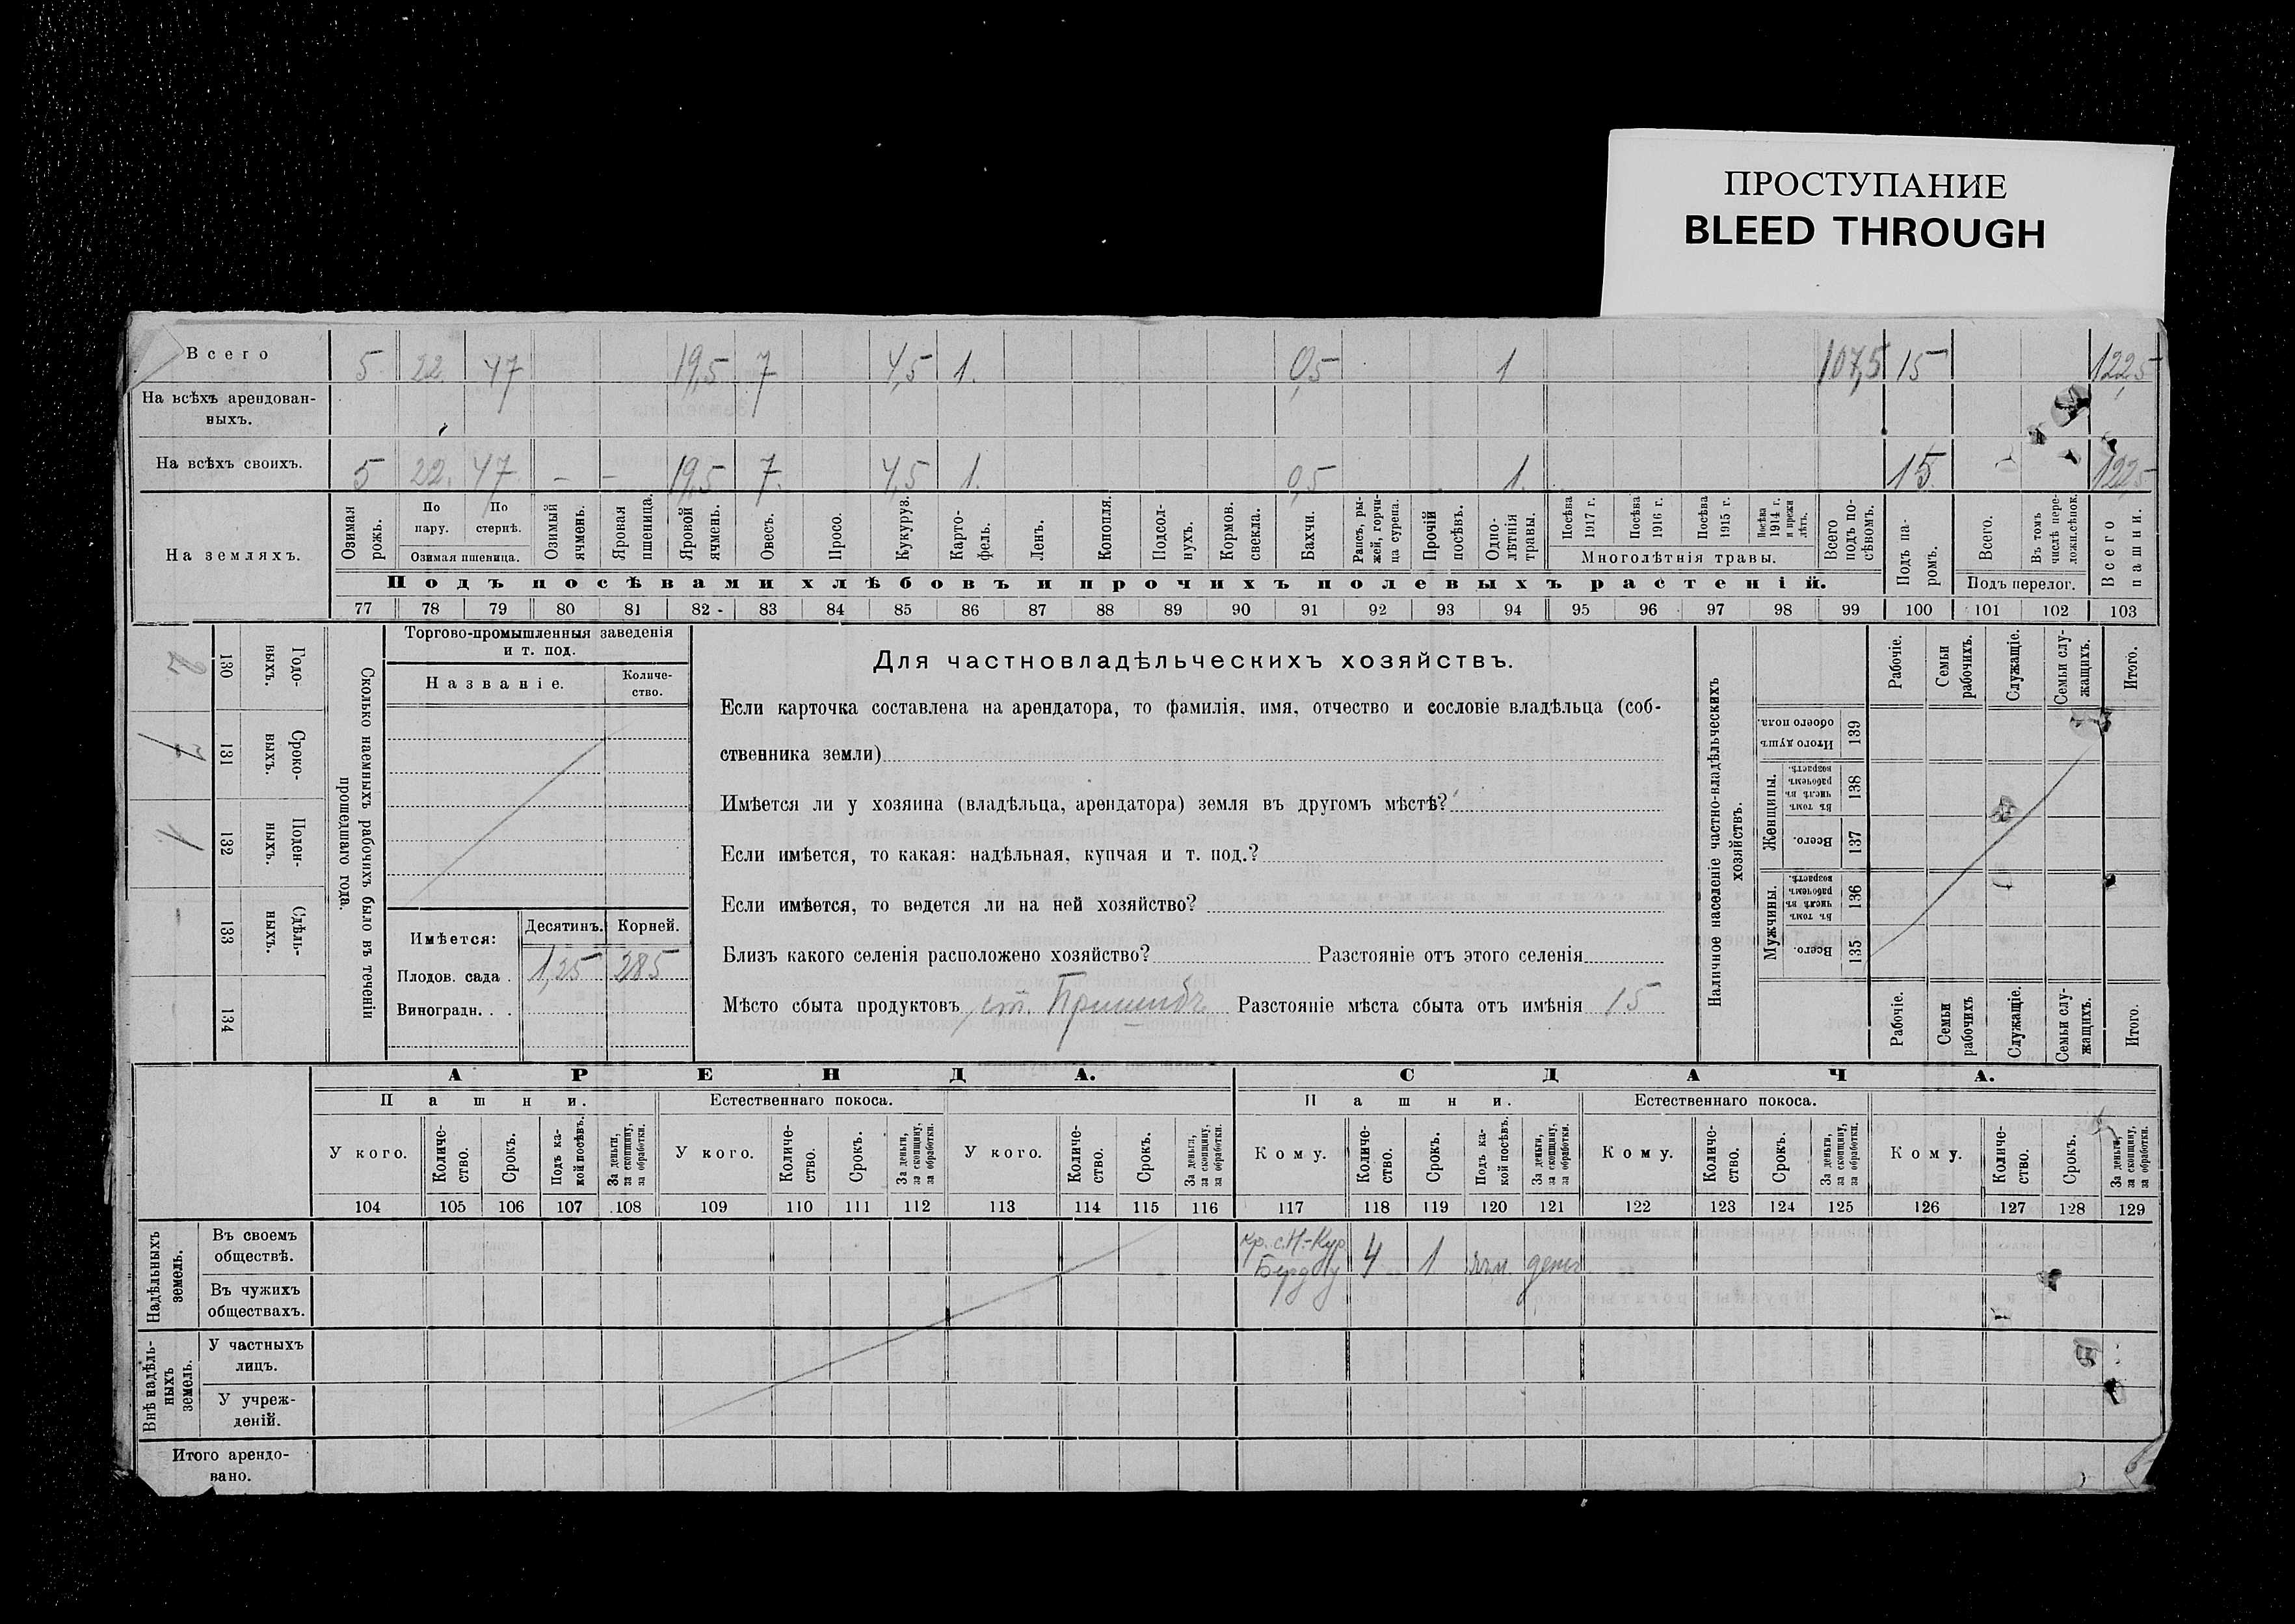 ПРОСТУПАНИЕ
BLEED THROUGH
Всего 5 22 47 19,5 7 4,5 1. 0,5 1 107,5 15 122,5
На всѣхъ арендован-
ныхъ.
На всѣхъ своихъ. 5 22. 47 - - 19,5 7. 4,5 1. 0,5 1. 15. 122,5
На земляхъ.
Озимая рожь.
По пару.
По стернѣ.
Озимая пшеница.
Озимый ячмень.
Яровая пшеница.
Яровой ячмень.
Овесъ.
Просо.
Кукуруз.
Карто-
фель.
Ленъ.
Конопля.
Подсол-
нухъ.
Кормов.
свекла.
Бахчи.
Рапсъ, ры-
жей, горчи-
ца сурепа.
Прочій
посѣвъ.
Одно-
лѣтнія
травы.
Посѣва
1917 г.
Посѣва
1916 г.
Посѣва
1915 г.
Посѣва
1914 г.
и прежн
лѣтъ.
Многолѣтнія травы.
Всего
подъ по-
сѣвомъ.
Подъ па-
ромъ.
Всего.
Въ томъ
числѣ пере-
ложн.сѣнок.
Подъ перелог.
Всего
пашни.
Подъ посѣвами хлѣбовъ и прочихъ полевыхъ растеній.
77 78 79 80 81 82 83 84 85 86 87 88 89 90 91 92 93 94 95 96 97 98 99 100 101 102 103
Сколько наемныхъ рабочихъ было въ теченіи
прошедшаго года.
Годо-
ныхъ.
130
2
Сроко-
ныхъ.
131
Поден-
ныхъ.
132
1
Сдѣль-
ныхъ.
133
-
134
Торгово-промышленныя заведенія
и т. под.
Названіе.
Количе-
ство.
Имѣется: Десятинъ. Корней.
Плодов. сада . 1,25 285
Виноградн. . .
Для частновладѣльческихъ хозяйствъ.
Если карточка составлена на арендатора, то фамилія, имя, отчество и сословіе владѣльца (соб-
ственника земли)
Имѣется ли у хозяина (владѣльца, арендатора) земля въ другомъ мѣстѣ?
Если имѣется, то какая: надѣльная, купчая и т. под.?
Если имѣется, то ведется ли на ней хозяйство?
Близъ какого селенія расположено хозяйство? Разстояніе отъ этого селенія
Мѣсто сбыта продуктовъ ст. Пришибъ Разстояніе мѣста сбыта отъ имѣнія 15
Наличное населеніе частно-владѣльческихъ
хозяйствъ.
Рабочіе.
Семьи
рабочихъ.
Служащіе.
Семьи слу-
жащихъ.
Итого.
Итого душъ
обоего пола.
139
Женщины.
Въ томъ
числѣ въ
рабочемъ
возрастѣ.
138
Всего.
137
Мужчины.
Въ томъ
числѣ въ
рабочемъ
возрастѣ.
136
Всего.
135
Рабочіе.
Семьи
рабочихъ
Служащіе.
Семьи слу-
жащихъ.
Итого.
АРЕНДА. СДАЧА.
Пашни. Естественнаго покоса. Пашни. Естественнаго покоса.
У кого.
Количе-
ство.
Срокъ.
Подъ ка-
кой посѣвъ.
За деньги,
за скопщину,
за обработки.
У кого.
Количе-
ство.
Срокъ.
За деньги,
за скопщину,
за обработки.
У кого.
Количе-
ство.
Срокъ.
За деньги,
за скопщину,
за обработки.
Кому.
Количе-
ство.
Срокъ.
Подъ ка-
кой посѣвъ.
За деньги,
за скопщину,
за обработки.
Кому.
Количе-
ство.
Срокъ.
За деньги,
за скопщину,
за обработки.
Кому.
Количе-
ство.
Срокъ.
За деньги,
за скопщину,
за обработки.
104 105 106 107 108 109 110 111 112 113 114 115 116 117 118 119 120 121 122 123 124 125 126 127 128 129
Надѣльныхъ
земель.
Въ своемъ
обществѣ.
кр. с. Н.-Кур
4 1
Въ чужихъ
обществахъ.
Внѣ надѣль-
ныхъ
земель.
У частныхъ
лицъ.
У учреж-
деній.
Итого арендо-
вано.